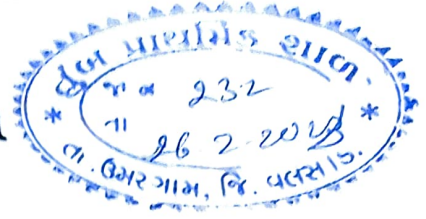 પ્રાથમિક શાળા
જા નં 232
તા 26-2-20
તા. ઉમરગામ, જિ. વલસાડ.